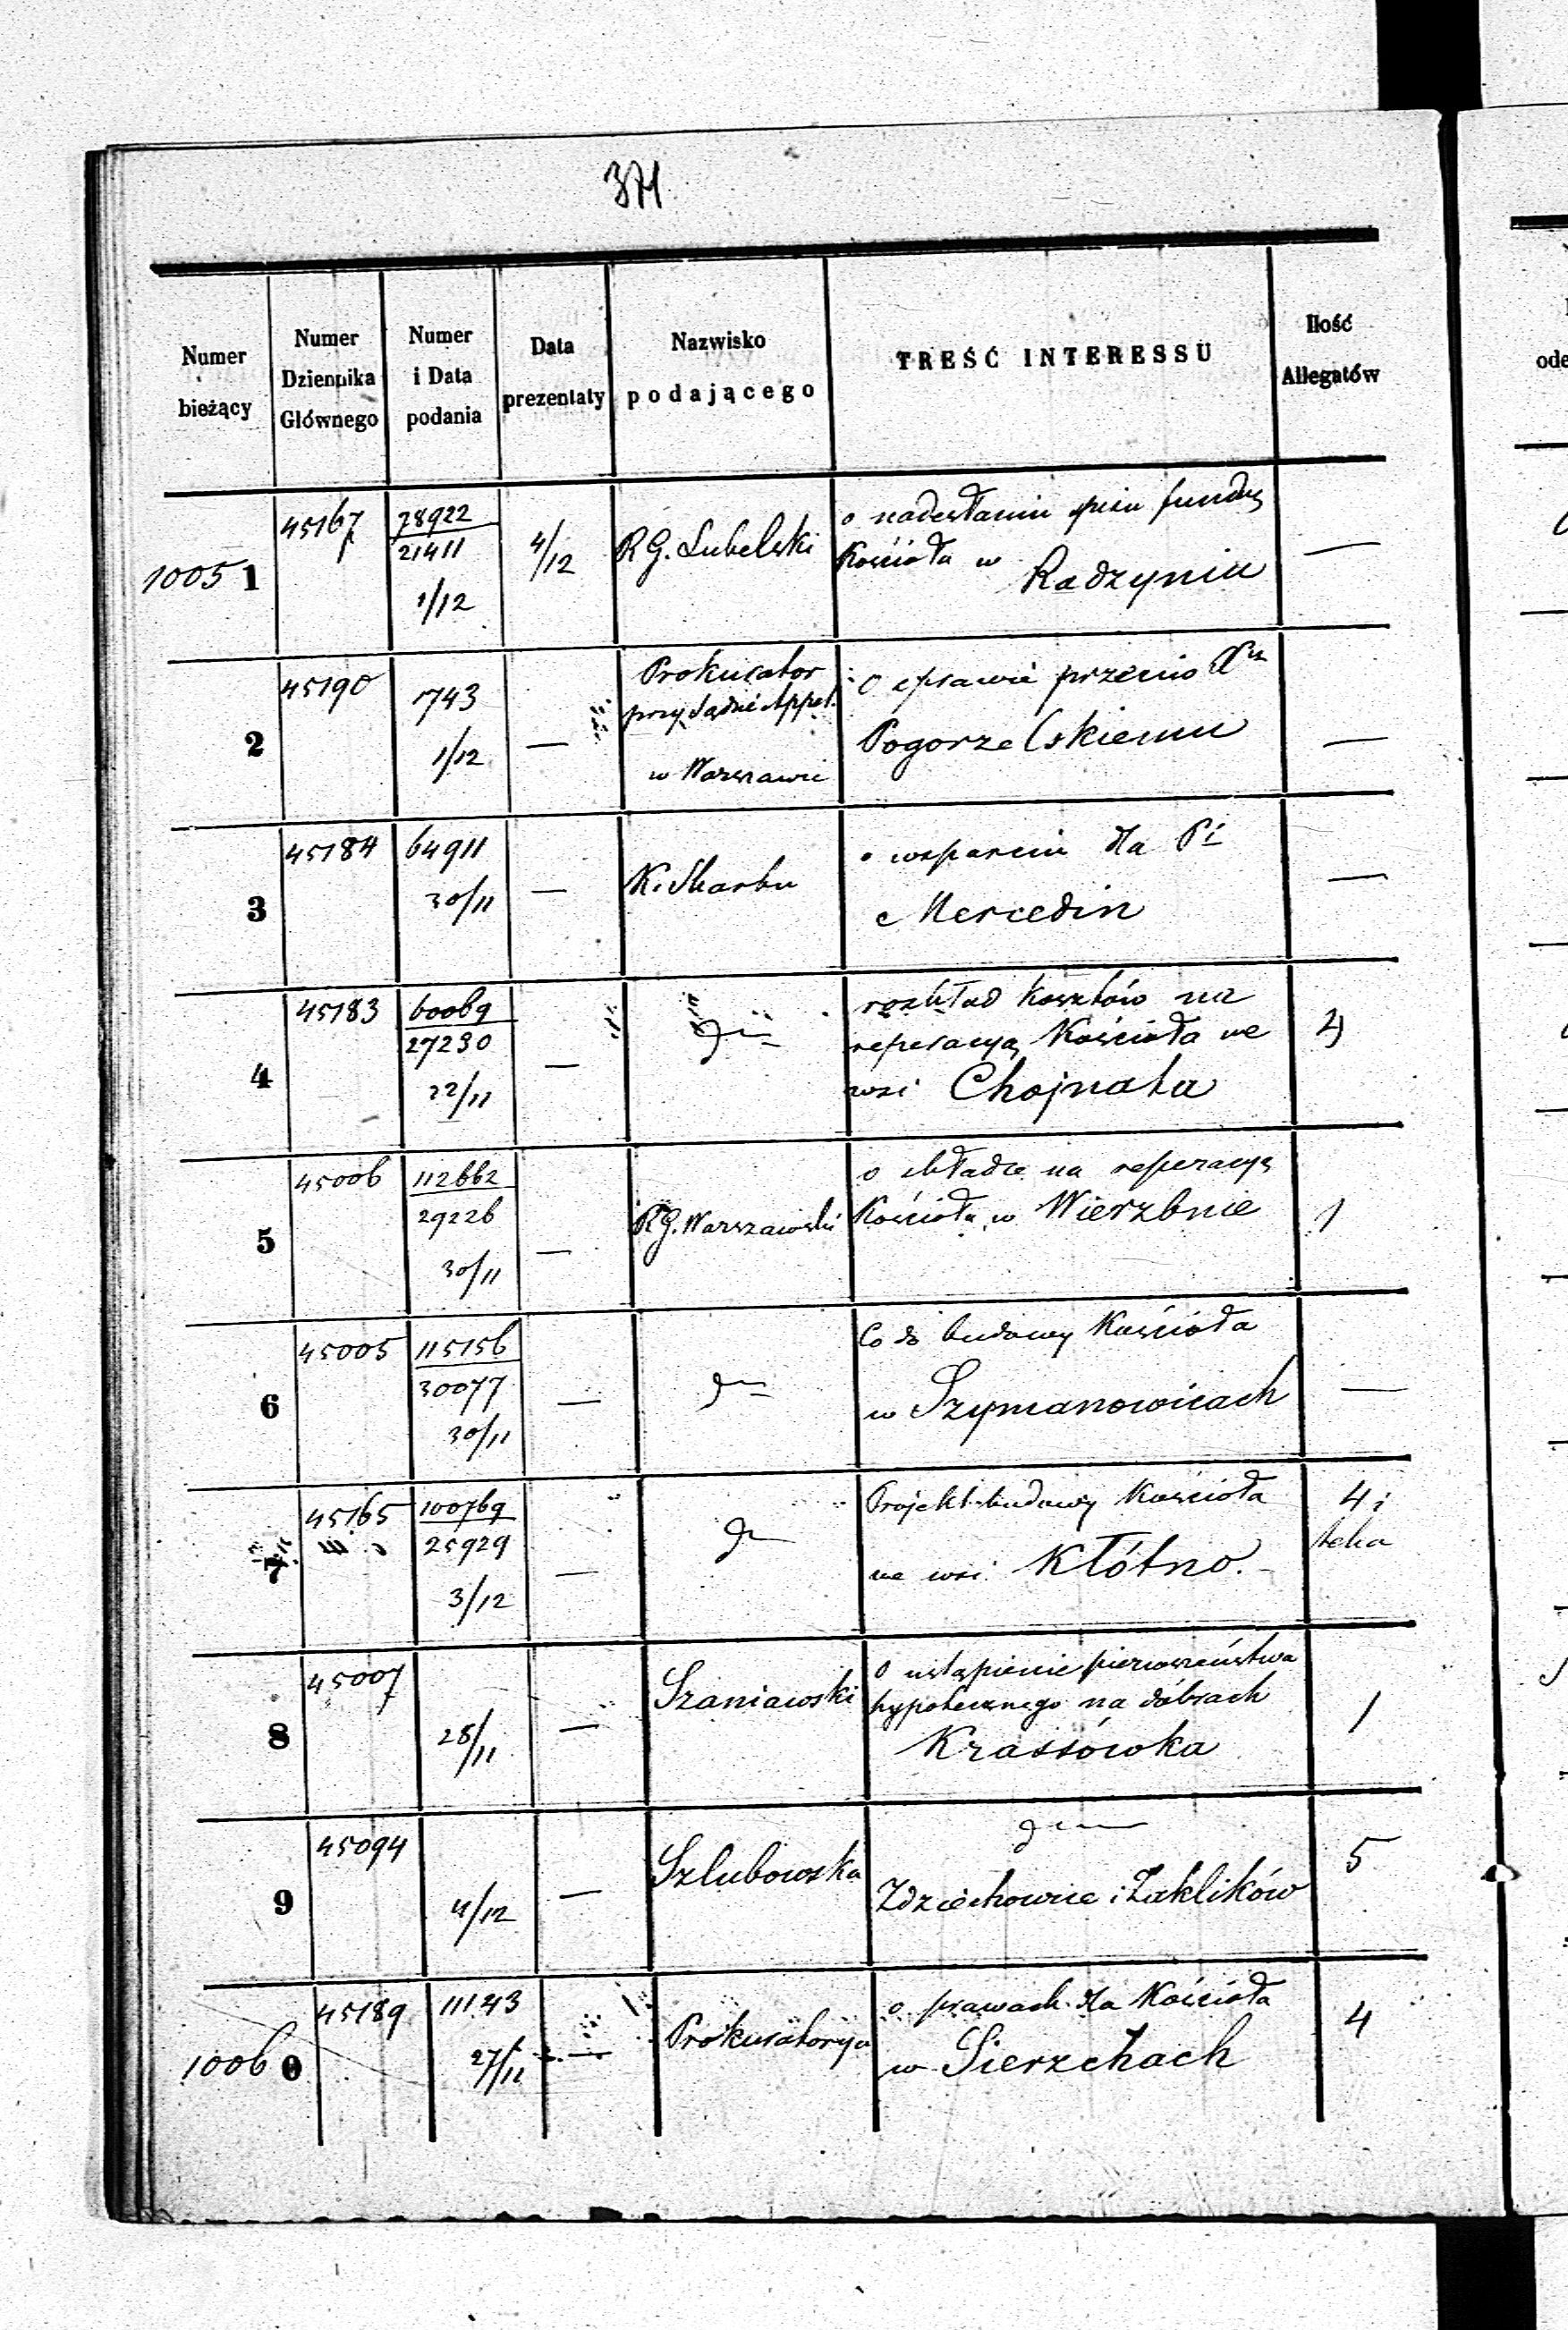 371.
Numer bieżący
Numer Dziennika Głównego
Numer i Data podania
Data prezentaty
Nazwisko podającego
TREŚĆ INTERESSU
Ilość Allegatów
1005 1
45167
78922
21411
1/12
4/12
R G. Lubelski
o nadesłaniu spisu
Kościoła w
Radzyniu
—
2
45190
743
1/12
—
Prokurator
przy Sądzie Appel.
w Warszawie
o sprawie przeciw
Pogorzelskiemu
—
3
45184
64911
30/11
—
K. Skarbu
o wsparciu dla
Mercedin
—
4
45183
60069
27230
22/11
—
rozkład kosztów na
reperacyą Kościoła we
wsi Chojnata
4
5
45006
112662
29226
30/11
—
RG. Warszawski
o składce na reperacyą
Kościoła w Wierzbnie
1
6
45005
115156
30077
30/11
—
Co do budowy Kościoła
w Szymanowicach
—
7
45165
100769
25929
3/12
—
Projekt budowy Kościoła
we wsi Kłótno.
4 i
teka
8
45007
28/11
—
Szaniawski
o ustąpienie pierwszeństwa
hypotecznego na dobrach
Krassówka
1
9
45094
4/12
—
Szlubowska
Zdziechowice i Zaklików
5
1006 0
45189
111143
27/11
—
Prokuratorya
o prawach dla Kościoła
w Sierzchach
4